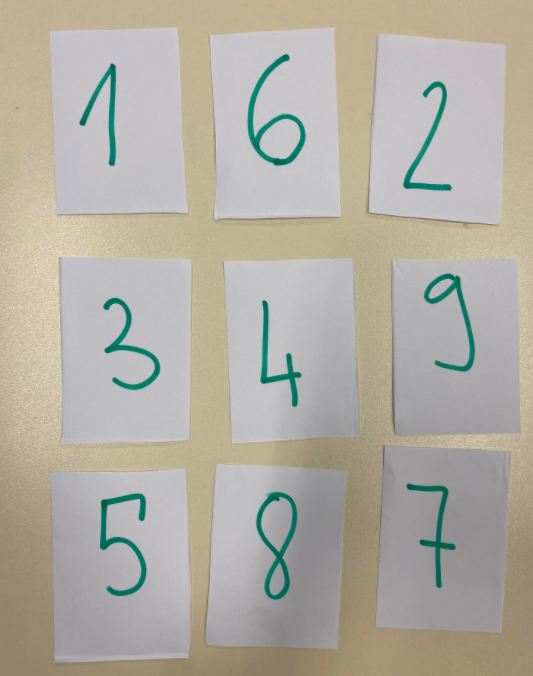 1 6 2
3 4 9
5 8 7